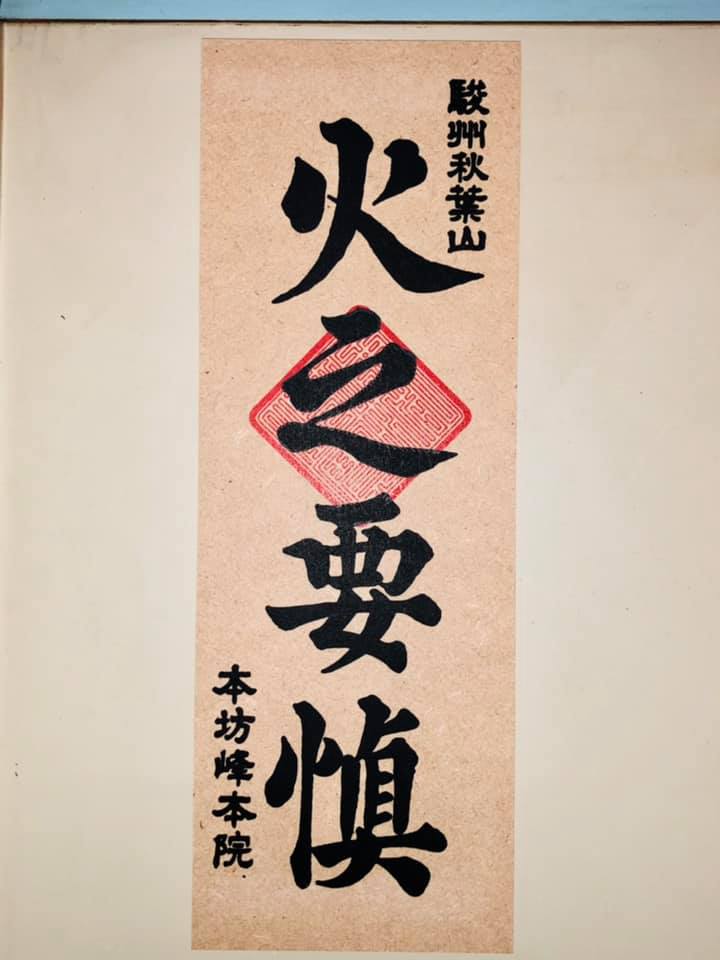 駿州秋葉山
火之要慎
本坊峰本院